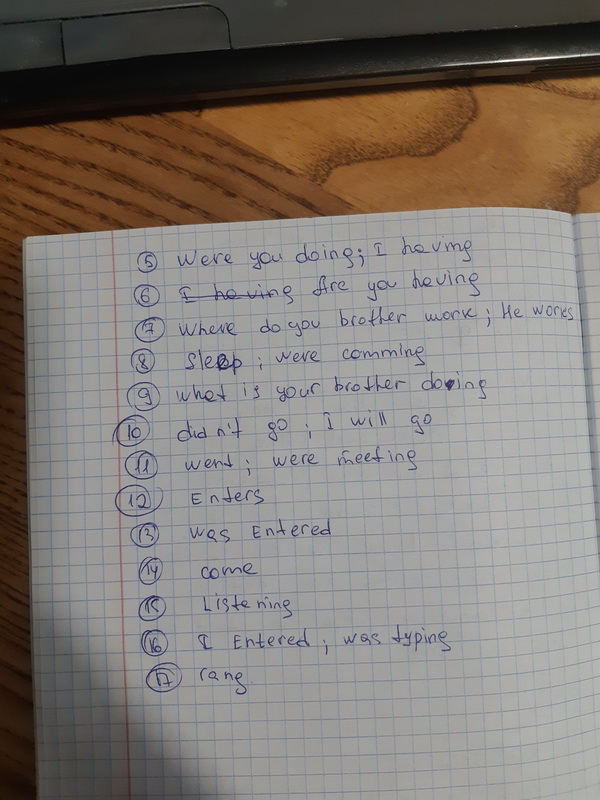 5 Were you doing; I having
6 I having Are you having
7 Where do you brother work; He works
8 Sleep; were comming
9 what is your brother doing
10 didn't go; I will go
11 went; were meeting
12 Enters
13 was Entered
14 come
15 Listening
16 I Entered; was typing
17 rang